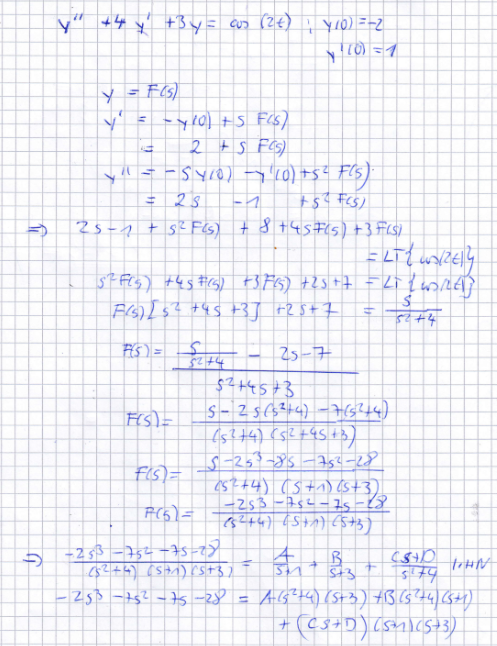 y'' + 4 y' + 3y = cos (2t) ; y(0) = -2
y'(0) = 1
y = F(s)
y' = -y(0) + s F(s)
= 2 + s F(s)
y'' = -s y(0) - y'(0) + s² F(s)
= 2s - 1 + s² F(s)
⇒ 2s - 1 + s² F(s) + 8 + 4s F(s) + 3 F(s)
= LT{cos(2t)}
s² F(s) + 4s F(s) + 3 F(s) + 2s + 7 = LT{cos(2t)}
F(s) [s² + 4s + 3] + 2s + 7 = s/(s²+4)
F(s) = (s/(s²+4) - 2s - 7)/(s² + 4s + 3)
F(s) = (s - 2s(s²+4) - 7(s²+4))/((s²+4) (s²+4s+3))
F(s) = (s - 2s³ - 8s - 7s² - 28)/((s²+4) (s+1) (s+3))
F(s) = (-2s³ - 7s² - 7s - 28)/((s²+4) (s+1) (s+3))
⇒ (-2s³ - 7s² - 7s - 28)/((s²+4) (s+1) (s+3)) = A/(s+1) + B/(s+3) + (Cs+D)/(s²+4) |·HN
-2s³ - 7s² - 7s - 28 = A(s²+4) (s+3) + B(s²+4) (s+1)
+ (Cs+D) (s+1) (s+3)